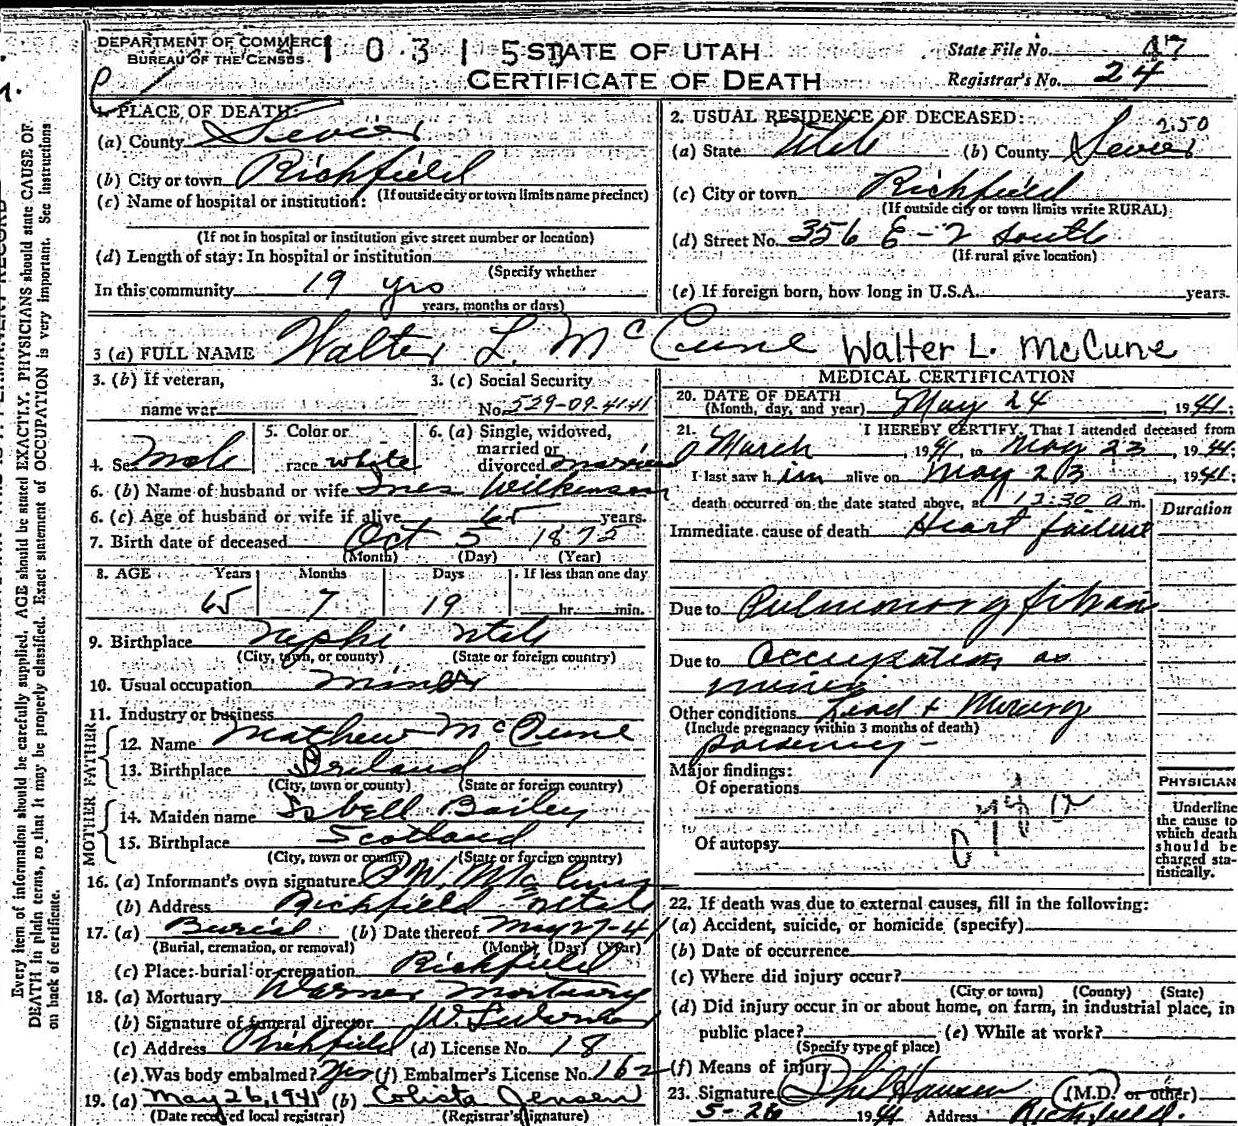 DEPARTMENT OF COMMERCE
BUREAU OF THE CENSUS
1 0 3 1 5
STATE OF UTAH
CERTIFICATE OF DEATH
State File No. 47
Registrar's No. 24
1. PLACE OF DEATH:
(a) County Sevier
(b) City or town Richfield
(If outside city or town limits name precinct)
(c) Name of hospital or institution:
(If not in hospital or institution give street number or location)
(d) Length of stay: In hospital or institution
(Specify whether
In this community 19 yrs
years, months or days)
2. USUAL RESIDENCE OF DECEASED:
250
(a) State Utah (b) County Sevier
(c) City or town Richfield
(If outside city or town limits write RURAL)
(d) Street No. 356 E - 2 South
(If rural give location)
(e) If foreign born, how long in U.S.A. years.
3 (a) FULL NAME Walter L. McCune Walter L. McCune
3. (b) If veteran,
name war
3. (c) Social Security
No. 529-09-4141
4. Sex Male
5. Color or
race white
6. (a) Single, widowed,
married or
divorced married
6. (b) Name of husband or wife Ines Wilkinson
6. (c) Age of husband or wife if alive 65 years.
7. Birth date of deceased Oct 5
(Month) (Day) (Year)
8. AGE Years Months Days If less than one day
65 7 19 hr. min.
9. Birthplace Nephi Utah
(City, town, or county) (State or foreign country)
10. Usual occupation miner
11. Industry or business
FATHER
12. Name Mathew McCune
13. Birthplace Ireland
(City, town or county) (State or foreign country)
MOTHER
14. Maiden name Isbell Bailey
15. Birthplace Scotland
(City, town or county) (State or foreign country)
16. (a) Informant's own signature McCune
(b) Address Richfield Utah
17. (a) Burial (b) Date thereof May 27-41
(Burial, cremation, or removal) (Month) (Day) (Year)
(c) Place: burial or cremation Richfield
18. (a) Mortuary Warner Mortuary
(b) Signature of funeral director
(c) Address Richfield (d) License No. 18
(e) Was body embalmed? Yes (f) Embalmer's License No. 162
19. (a) May 26, 1941 (b) Colista Jensen
(Date received local registrar) (Registrar's signature)
MEDICAL CERTIFICATION
20. DATE OF DEATH
(Month, day, and year) May 24, 1941;
21. I HEREBY CERTIFY, That I attended deceased from
March, 1941, to May 23, 1941;
I last saw him alive on May 23, 1941;
death occurred on the date stated above, at 12:30 a m.
Duration
Immediate cause of death Heart failure
Due to Pulmonary
Due to Occupation as
miner
Other conditions Lead + Mercury
(Include pregnancy within 3 months of death)
Major findings:
Of operations
Of autopsy
PHYSICIAN
Underline
the cause to
which death
should be
charged sta-
tistically.
22. If death was due to external causes, fill in the following:
(a) Accident, suicide, or homicide (specify)
(b) Date of occurrence
(c) Where did injury occur?
(City or town) (County) (State)
(d) Did injury occur in or about home, on farm, in industrial place, in
public place? (e) While at work?
(Specify type of place)
(f) Means of injury
23. Signature (M.D. or other)
5-26 1941 Address Richfield.
Every item of information should be carefully supplied. AGE should be stated EXACTLY. PHYSICIANS should state CAUSE OF
DEATH in plain terms, so that it may be properly classified. Exact statement of OCCUPATION is very important. See instructions
on back of certificate.